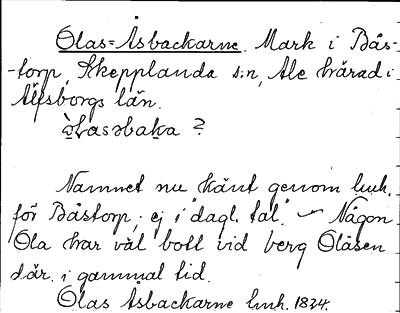 Olas=Åsbackarne. Mark i Bås-
-torp, Skepplanda s:n, Ale härad i
Älfsborgs län.
?
Namnet nu känt genom lmk.
för Båstorp, ej i "dagl. tal." – Någon
Ola har väl bott vid berg Olåsen
där i gammal tid.
Olas Åsbackarne lmk. 1834.